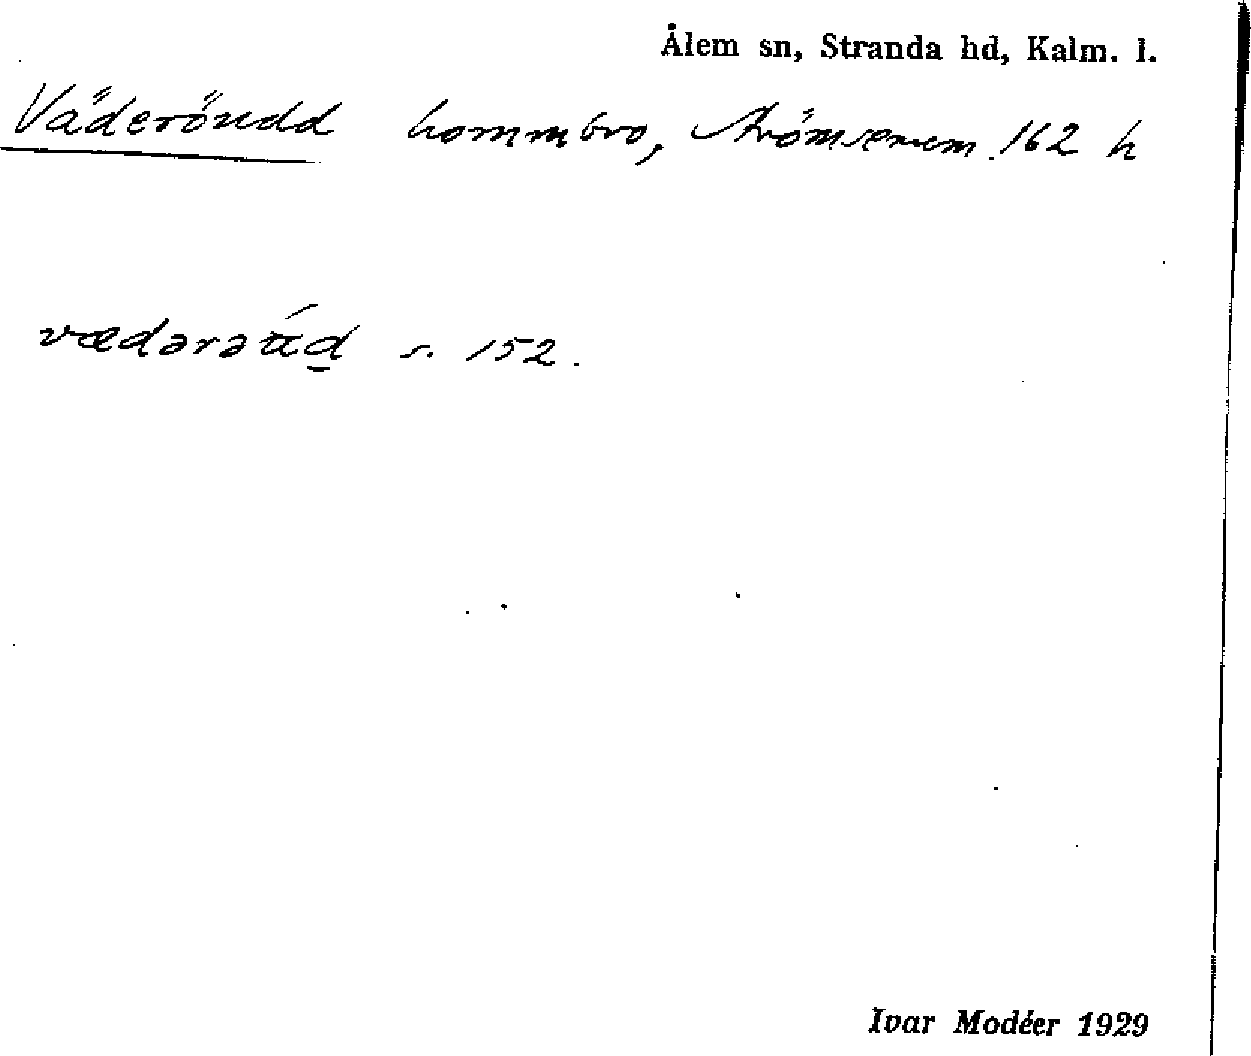 Ålem sn, Stranda hd, Kalm. l.
Väderöudd hommbro, Strömserum 162 h
vædərəu̇́d s. 152.
Ivar Modéer 1929